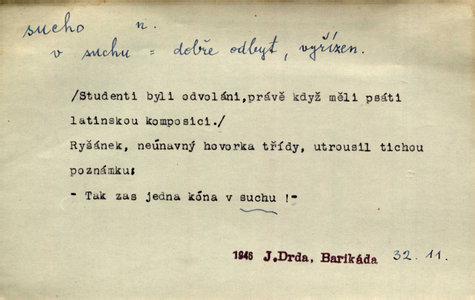 sucho n.
v suchu = dobře odbyt, vyřízen.
/Studenti byli odvoláni,právě když měli psáti
latinskou komposici./
Ryšánek, neúnavný hovorka třídy, utrousil tichou
poznámku:
- Tak zas jedna kóna v suchu !-
1946 J.Drda, Barikáda 32. 11.